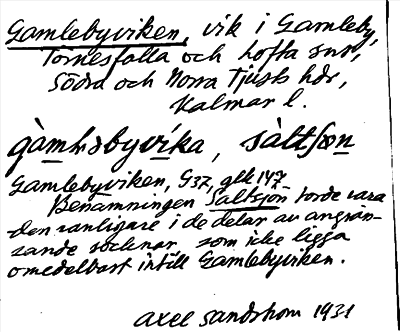 Gamlebyviken, vik i Gamleby,
Törnesfalla och Lofta snr,
Södra och Norra Tjusts hdr,
Kalmar l.
Gamlebyviken, G37, glk 147
Benämningen Saltsjön torde vara
den vanligare i de delar av angrän-
sande socknar som icke ligga
omedelbart intill Gamlebyviken.
Axel Sandström 1931